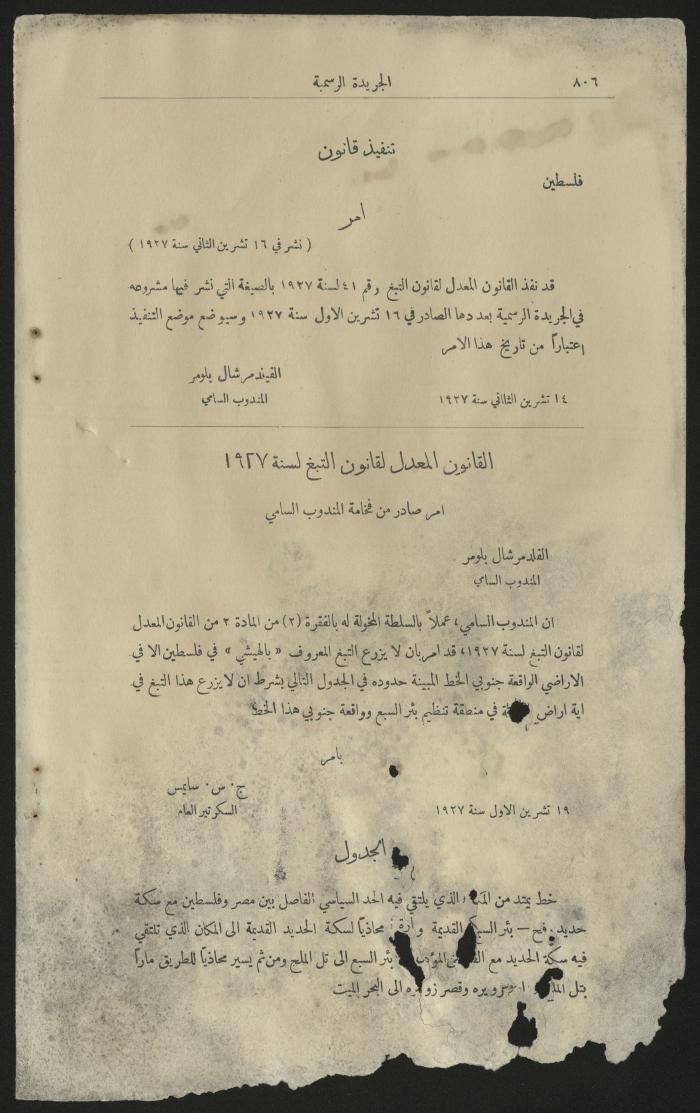 ٨٠٦
الجريدة الرسمية
تنفيذ قانون
فلسطين
امر
( نشر في ١٦ تشرين الثاني سنة ١٩٢٧ )
قد نفذ القانون المعدل لقانون التبغ رقم ٤١ لسنة ١٩٢٧ بالصيغة التي نشر فيها مشروعه
في الجريدة الرسمية بعددها الصادر في ١٦ تشرين الاول سنة ١٩٢٧ وسيوضع موضع التنفيذ
اعتباراً من تاريخ هذا الامر
القيندمرشال بلومر
١٤ تشرين الثاني سنة ١٩٢٧
المندوب السامي
القانون المعدل لقانون التبغ لسنة ١٩٢٧
امر صادر من فخامة المندوب السامي
الفلدمرشال بلومر
المندوب السامي
ان المندوب السامي، عملاً بالسلطة المخولة له بالفقرة (٢) من المادة ٢ من القانون المعدل
لقانون التبغ لسنة ١٩٢٧، قد امر بان لا يزرع التبغ المعروف « بالهيشي » في فلسطين الا في
الاراضي الواقعة جنوبي الخط المبينة حدوده في الجدول التالي بشرط ان لا يزرع هذا التبغ في
اية اراض في منطقة تنظيم بئر السبع وواقعة جنوبي هذا الخط
بامر
ج. س. سايمس
١٩ تشرين الاول سنة ١٩٢٧
السكرتير العام
الجدول
خط يمتد من الذي يلتقي فيه الحد السياسي الفاصل بين مصر وفلسطين مع سكة
حديد رفح — بئر القديمة محاذياً لسكة الحديد القديمة الى المكان الذي تلتقي
فيه سكة الحديد مع بئر السبع الى تل الملح ومن ثم يسير محاذياً للطريق ماراً
بتل وقصر الى البحر الميت